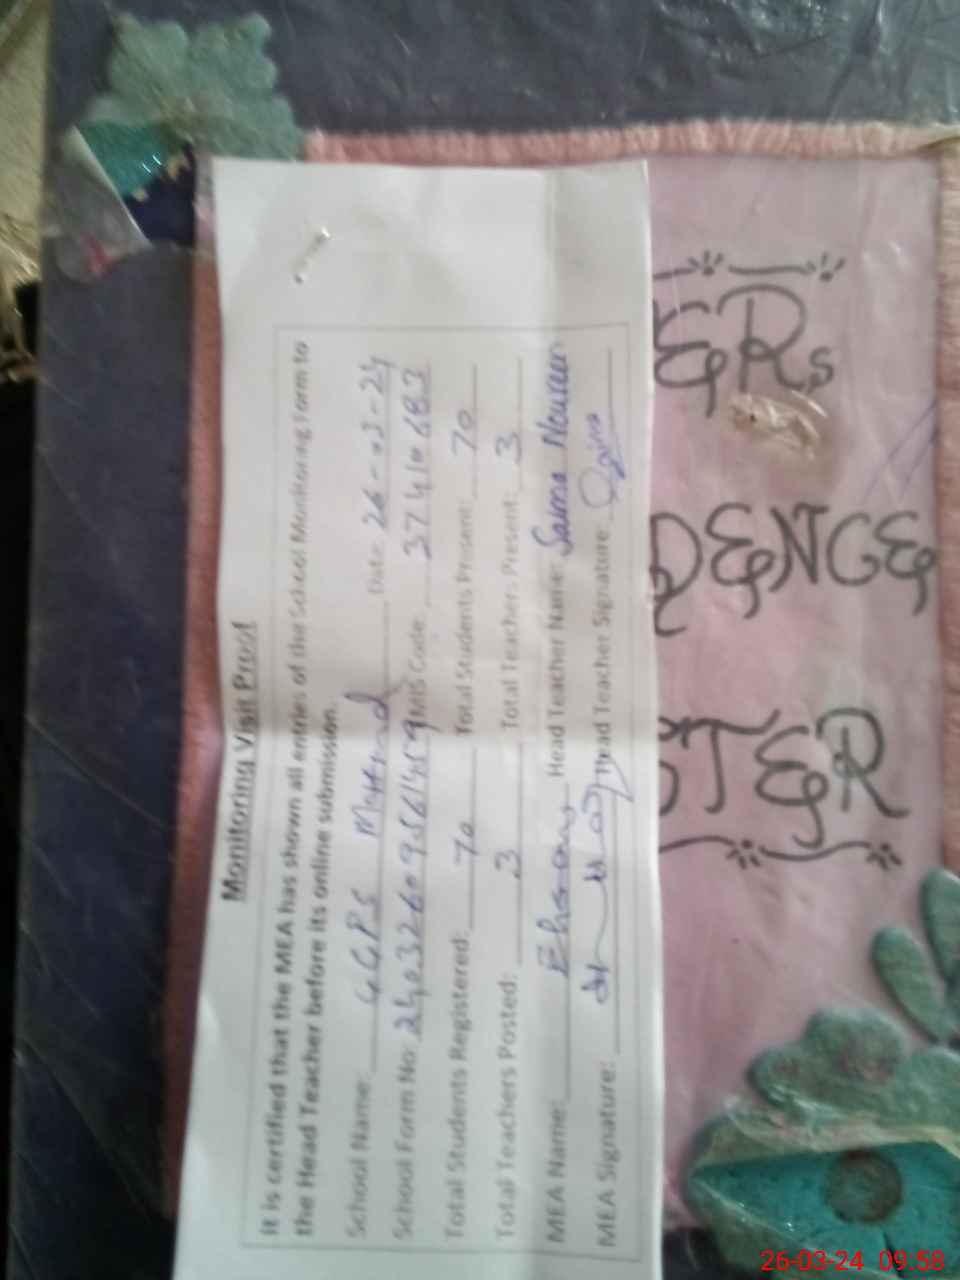 Monitoring Visit Proof
It is certified that the MEA has shown all entries of the School Monitoring Form to
the Head Teacher before its online submission.
School Name: GGPS Date: 26-03-24
School Form No: MIS Code: 37410683
Total Students Registered: 70 Total Students Present: 70
Total Teachers Posted: 3 Total Teachers Present: 3
MEA Name: Ehsan Head Teacher Name: Saima Noureen
MEA Signature: Head Teacher Signature: Saima
ERs
DENCE
TER
26-03-24 09:58